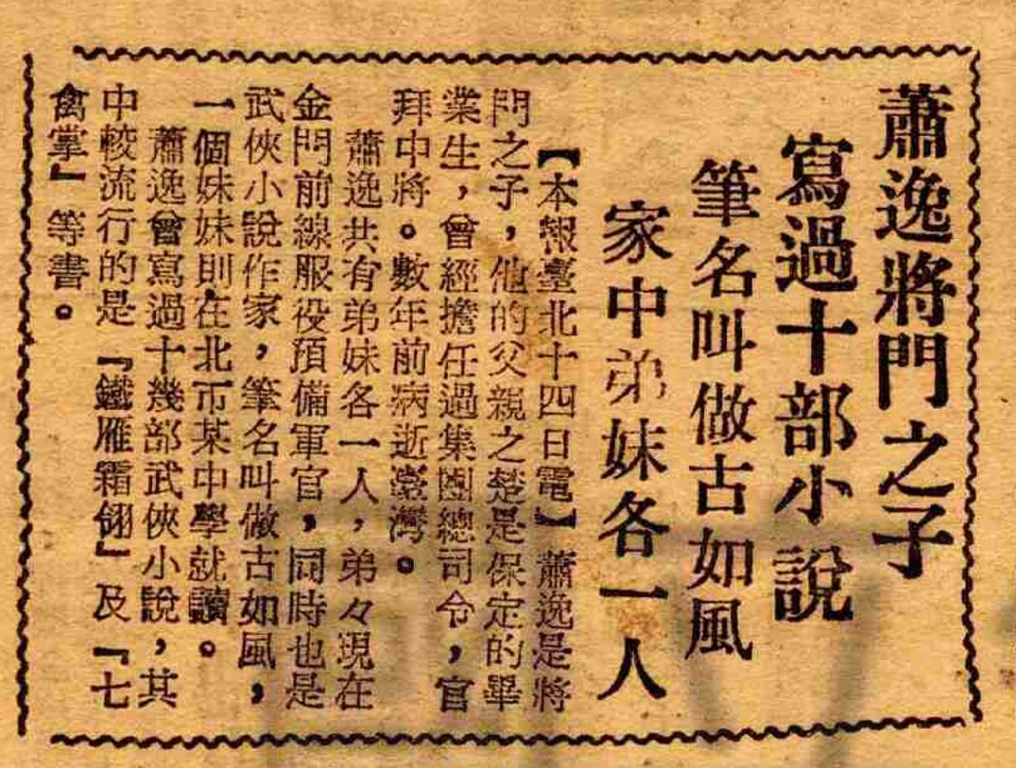 蕭逸將門之子
寫過十部小說
筆名叫做古如風
家中弟妹各一人
【本報臺北十四日電】蕭逸是將
門之子，他的父親之楚是保定的畢
業生，曾經擔任過集團總司令，官
拜中將。數年前病逝臺灣。
蕭逸共有弟妹各一人，弟々現在
金門前線服役預備軍官，同時也是
武俠小說作家，筆名叫做古如風，
一個妹妹則在北市某中學就讀。
蕭逸曾寫過十幾部武俠小說，其
中較流行的是『鐵雁霜翎』及『七
禽掌』等書。